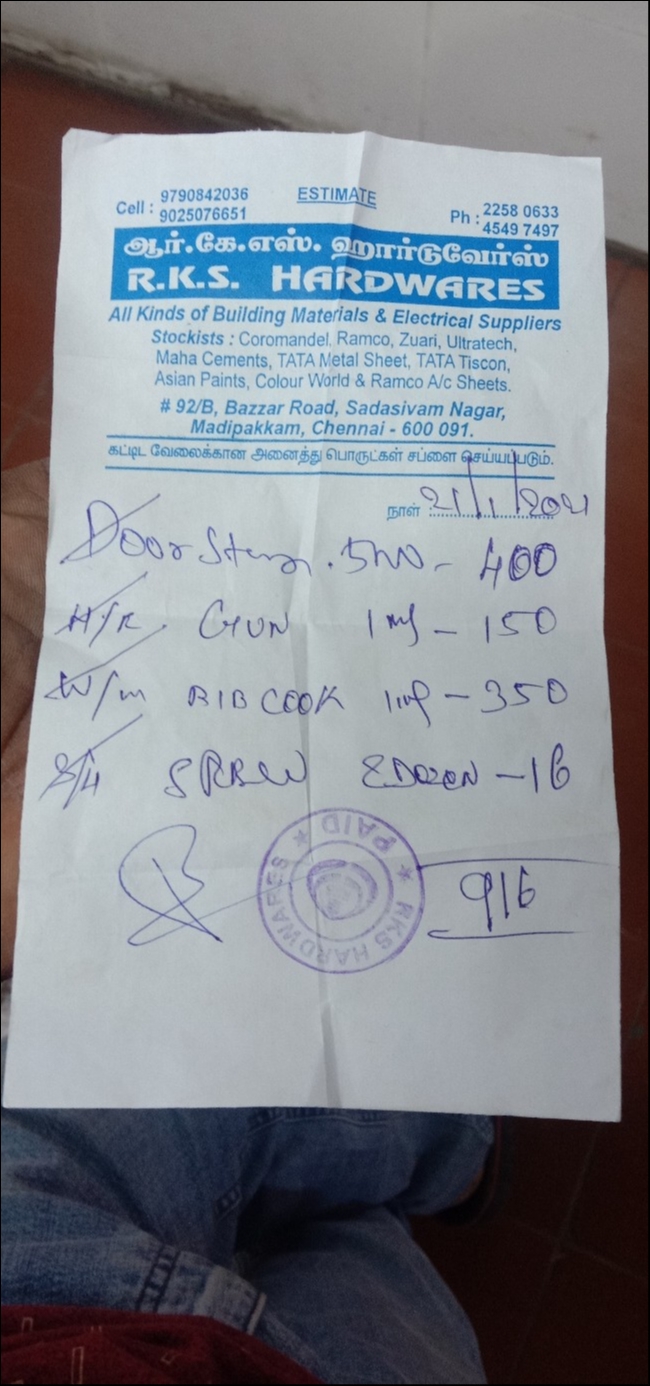 ESTIMATE
Cell : 9790842036
9025076651
Ph : 2258 0633
4549 7497
ஆர்.கே.எஸ். ஹார்டுவேர்ஸ்
R.K.S. HARDWARES
All Kinds of Building Materials & Electrical Suppliers
Stockists : Coromandel, Ramco, Zuari, Ultratech,
Maha Cements, TATA Metal Sheet, TATA Tiscon,
Asian Paints, Colour World & Ramco A/c Sheets.
# 92/B, Bazzar Road, Sadasivam Nagar,
Madipakkam, Chennai - 600 091.
கட்டிட வேலைக்கான அனைத்து பொருட்கள் சப்ளை செய்யப்படும்.
நாள் 21/1/2021
Door - 400
GUN - 150
W/m BIB COOK - 350
DOZEN - 16
916
RKS HARDWARES ★ PAID ★